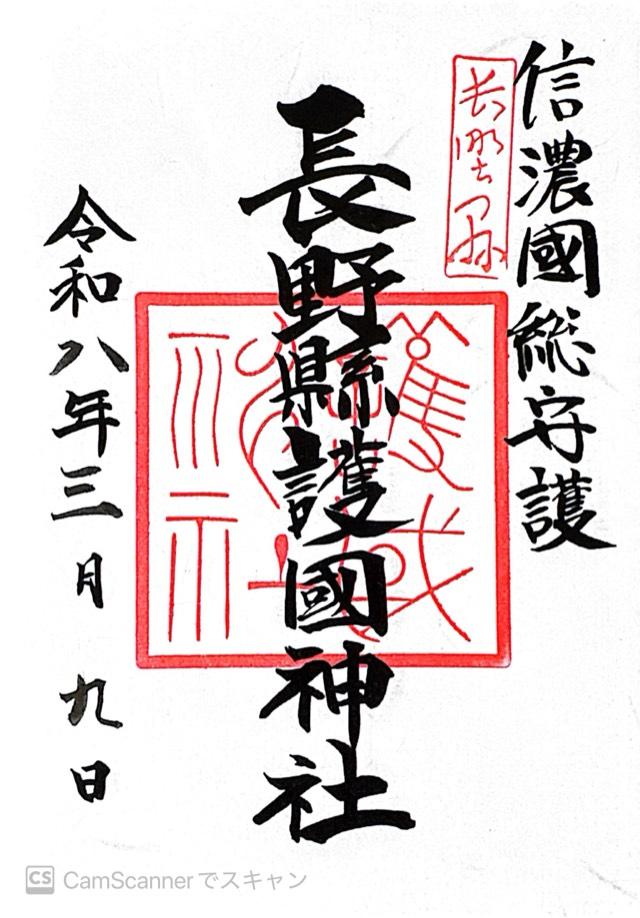 信濃國総守護
長野縣
長野縣護國神社
令和八年三月九日
CS CamScannerでスキャン